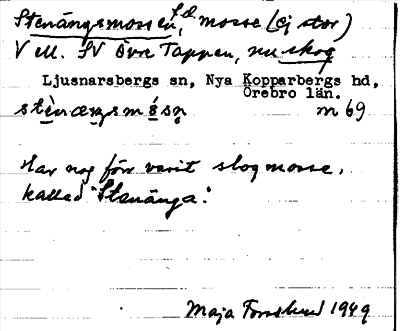 Stenängsmossen, f.d. mosse (ej stor)
V ell. SV Övre Tappen, nu skog
Ljusnarsbergs sn, Nya Kopparbergs hd,
Örebro län.
stènæŋsmósn̥ m 69
Har nog förr varit slogmosse,
kallad "Stenänga".
Maja Forslund 1949